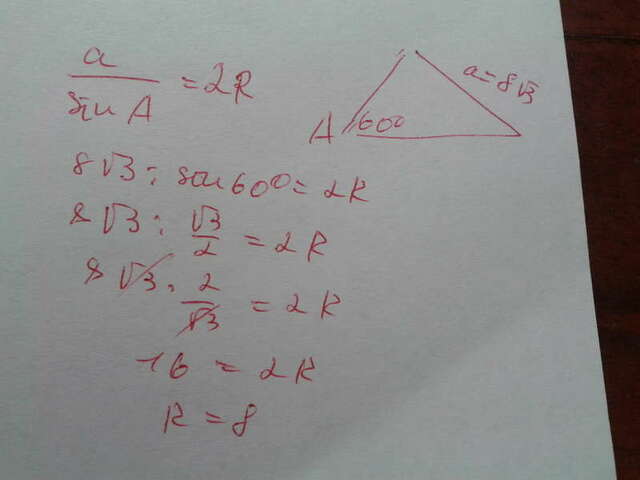 a/sin A = 2R
A 60° a=8√3
8√3 : sin 60° = 2R
8√3 : √3/2 = 2R
8√3 · 2/√3 = 2R
16 = 2R
R = 8